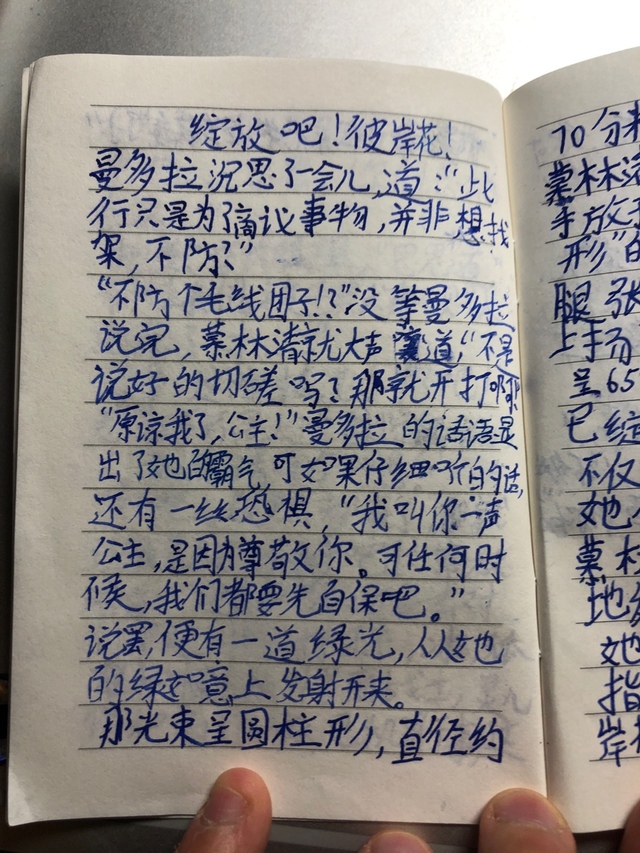 绽放吧!彼岸花!
曼多拉沉思了一会儿,道:“此
行只是为了商议事物,并非想找
架,不防?”
“不防个毛线团子!?”没等曼多拉
说完,慕林清就大声嚷道,“不是
说好的切磋吗?那就开打啊!”
“原谅我了,公主!”曼多拉的话语显
出了她的霸气,可如果仔细听的话,
还有一丝恐惧,“我叫你一声
公主,是因为尊敬你。可任何时
候,我们都要先自保吧。”
说罢,便有一道绿光,从她
的绿如意上发射开来。
那光束呈圆柱形,直径约
70分
慕林清
手放
形”的
腿张
上手
呈65
已绽
不仅
她
慕林
地
她
指
岸